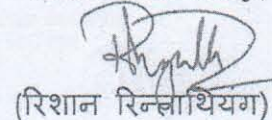 (रिशान रिन्लाथियंग)